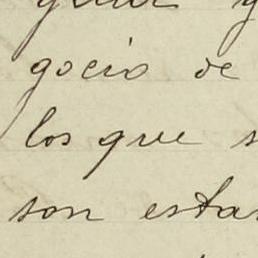 gocio de
los que s
son estas